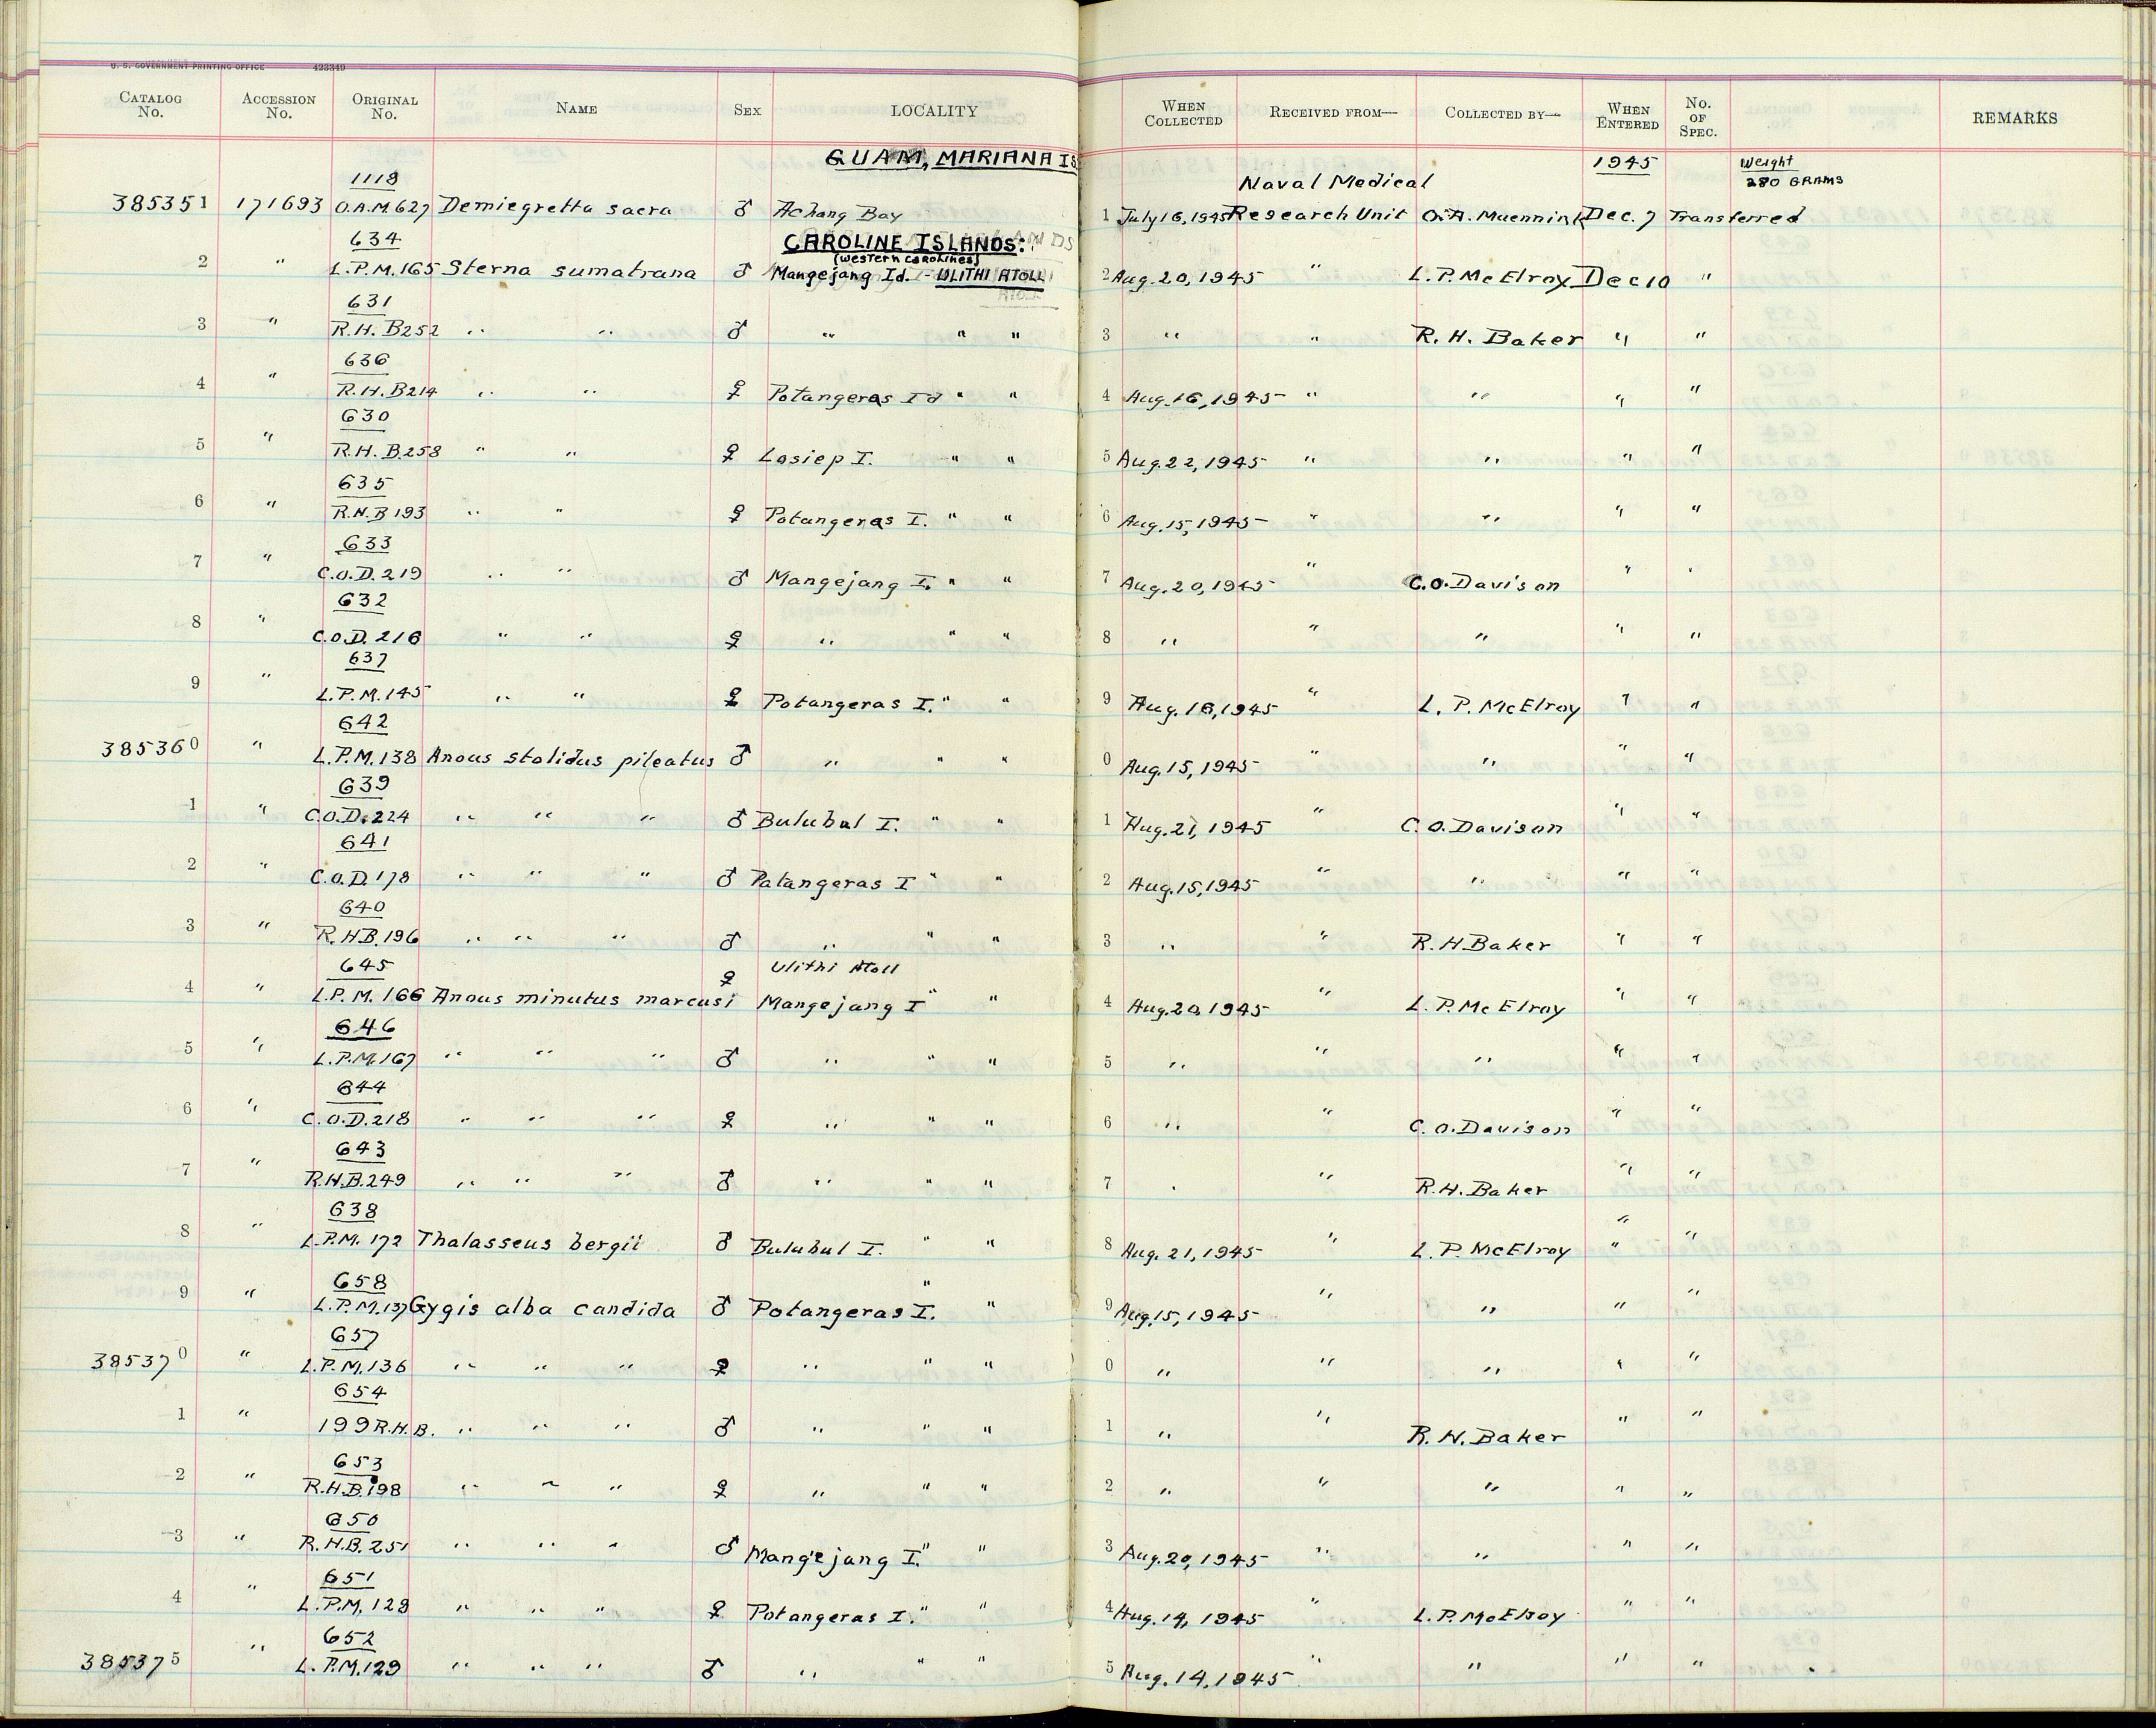 U. S. GOVERNMENT PRINTING OFFICE 423349
CATALOG No. ACCESSION No. ORIGINAL No. NAME SEX LOCALITY WHEN COLLECTED RECEIVED FROM— COLLECTED BY— WHEN ENTERED No. OF SPEC. REMARKS
GUAM, MARIANA IS 1945 Weight
1118 Naval Medical 280 GRAMS
385351 171693 O.A.M.627 Demiegretta sacra ♂ Achang Bay 1 July 16, 1945 Research Unit O.A. Muennink Dec. 7 Transferred
634 CAROLINE ISLANDS:
(Western Carolines)
2 " L.P.M.165 Sterna sumatrana ♂ Mangejang Id. - ULITHI ATOLL 2 Aug. 20, 1945 " L.P. McElroy Dec 10 "
631
3 " R.H.B252 " " ♂ " " " 3 " " R. H. Baker " "
636
4 " R.H.B214 " " ♀ Potangeras Id " " 4 Aug. 16, 1945 " " " "
630
5 " R.H.B.258 " " ♀ Losiep I. " " 5 Aug. 22, 1945 " " " "
635
6 " R.H.B193 " " ♀ Potangeras I. " " 6 Aug. 15, 1945 " " " "
633
7 " C.O.D.219 " " ♂ Mangejang I. " " 7 Aug. 20, 1945 " C.O. Davison " "
632
8 " C.O.D. 216 " " ♀ " " " 8 " " " " "
637
9 " L.P.M.145 " " ♀ Potangeras I. " " 9 Aug. 16, 1945 " L. P. McElroy " "
642
385360 " L.P.M.138 Anous stolidus pileatus ♂ " " " 0 Aug. 15, 1945 " " " "
639
1 " C.O.D.224 " " " ♂ Bulubul I. " " 1 Aug. 21, 1945 " C. O. Davison " "
641
2 " C.O.D.178 " " " ♂ Patangeras I " " 2 Aug. 15, 1945 " " " "
640
3 " R.HB.196 " " " ♂ " " " 3 " " R. H Baker " "
645 Ulithi Atoll
4 " L.P.M. 166 Anous minutus marcusi ♀ Mangejang I " " 4 Aug. 20, 1945 " L.P. McElroy " "
646
5 " L.P.M.167 " " " ♂ " " " 5 " " " " "
644
6 " C.O.D.218 " " " ♀ " " " 6 " " C. O. Davison " "
643
7 " R.H.B.249 " " " ♂ " " " 7 " " R.H. Baker " "
638
8 " L.P.M. 172 Thalasseus bergii ♂ Bulubul I. " " 8 Aug. 21, 1945 " L. P. McElroy " "
658
9 " L.P.M.137 Gygis alba candida ♂ Potangeras I. " " 9 Aug. 15, 1945 " " " "
657
385370 " L.P.M.136 " " " ♀ " " " 0 " " " " "
654
1 " 199 R.H.B. " " " ♂ " " " 1 " " R. H. Baker " "
653
2 " R.H.B.198 " " " ♀ " " " 2 " " " " "
650
3 " R.H.B.251 " " " ♂ Mangejang I. " " 3 Aug. 20, 1945 " " " "
651
4 " L.P.M. 128 " " " ♀ Potangeras I. " " 4 Aug. 14, 1945 " L.P. McElroy " "
652
385375 " L.P.M.129 " " " ♂ " " " 5 Aug. 14, 1945 " " " "